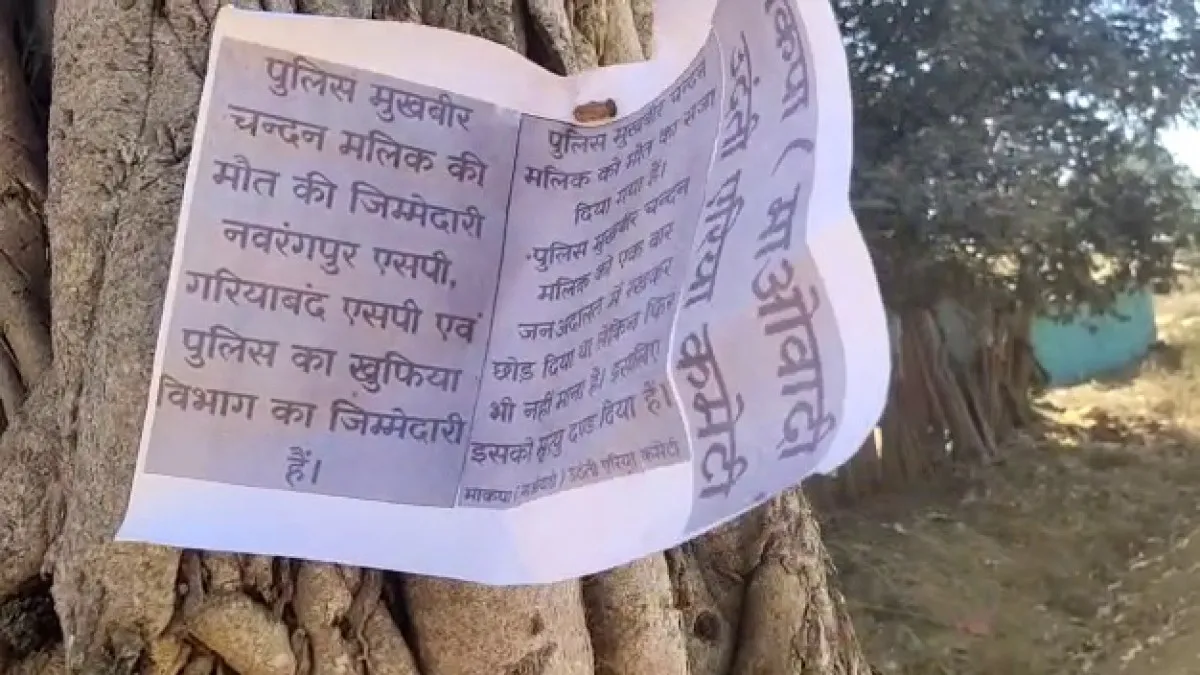 पुलिस मुखबीर
चन्दन मलिक की
मौत की जिम्मेदारी
नवरंगपुर एसपी,
गरियाबंद एसपी एवं
पुलिस का खुफिया
विभाग का जिम्मेदारी
हैं।
पुलिस मुखबीर चन्दन
मलिक को मौत का सजा
दिया गया हैं।
पुलिस मुखबीर चन्दन
मलिक को एक बार
जनअदालत में रखकर
छोड़ दिया था लेकिन फिर
भी नहीं माना है। इसलिए
इसको मृत्यु दण्ड दिया है।
भाकपा उदंती एरिया कमेटी
(माओवादी
उदंती एरिया कमेटी